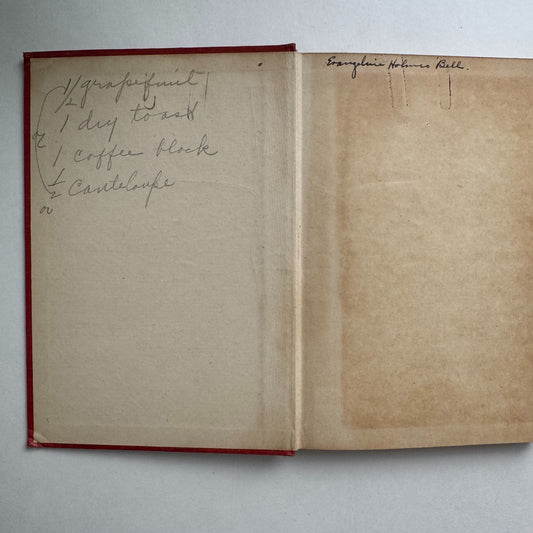 1/2 grapefruit
1 dry toast
1 coffee block
1/2 Canteloupe
or
Evangeline Holmes Bell.